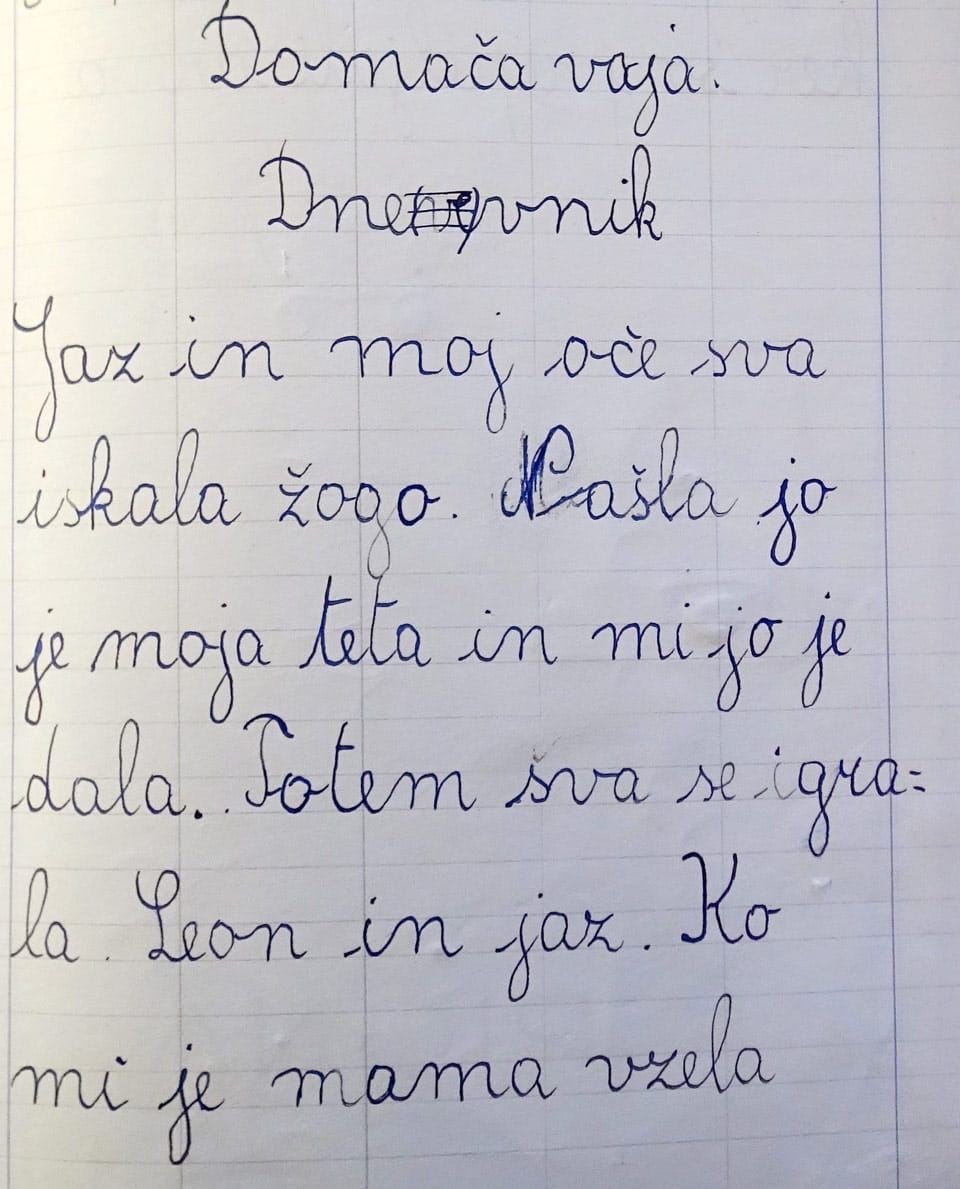 Domača vaja.
Dnevnik
Jaz in moj oče sva
iskala žogo. Našla jo
je moja teta in mi jo je
dala. Potem sva se igra=
la. Leon in jaz. Ko
mi je mama vzela